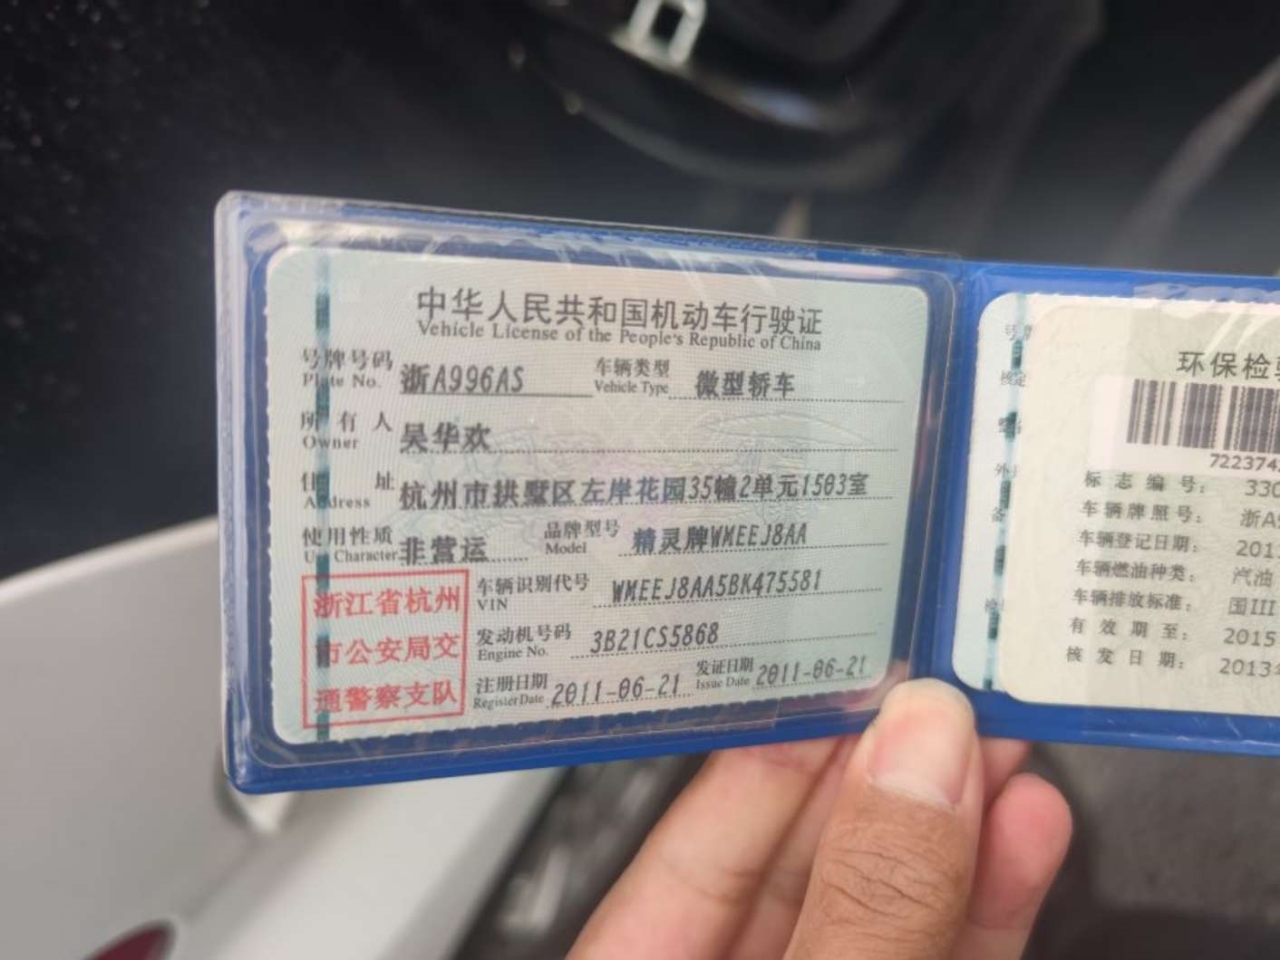 中华人民共和国机动车行驶证
Vehicle License of the People's Republic of China
号牌号码 浙A996AS 车辆类型 微型轿车
Plate No. Vehicle Type
所有人 吴华欢
Owner
住址 杭州市拱墅区左岸花园35幢2单元1503室
Address
使用性质 非营运 品牌型号 精灵牌WMEEJ8AA
Use Character Model
浙江省杭州
市公安局交
通警察支队
车辆识别代号 WMEEJ8AA5BK475581
VIN
发动机号码 3B21CS5868
Engine No.
注册日期 2011-06-21 发证日期 2011-06-21
Register Date Issue Date
环保检
722374
标志编号: 330
车辆牌照号: 浙A
车辆登记日期: 201
车辆燃油种类: 汽油
车辆排放标准: 国III
有效期至: 2015
核发日期: 2013